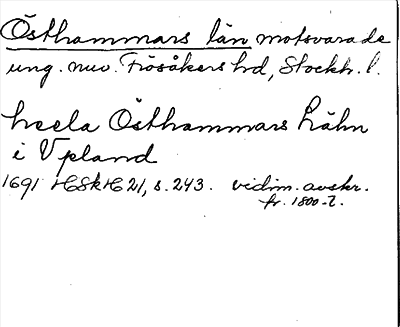 Östhammars län motsvarade
ung. nuv. Frösåkers hd, Stockh. l.
heela Östhammars Lähn
i Vpland
1691 HSkH 21, s. 243. vidim. avskr.
fr. 1800-t.